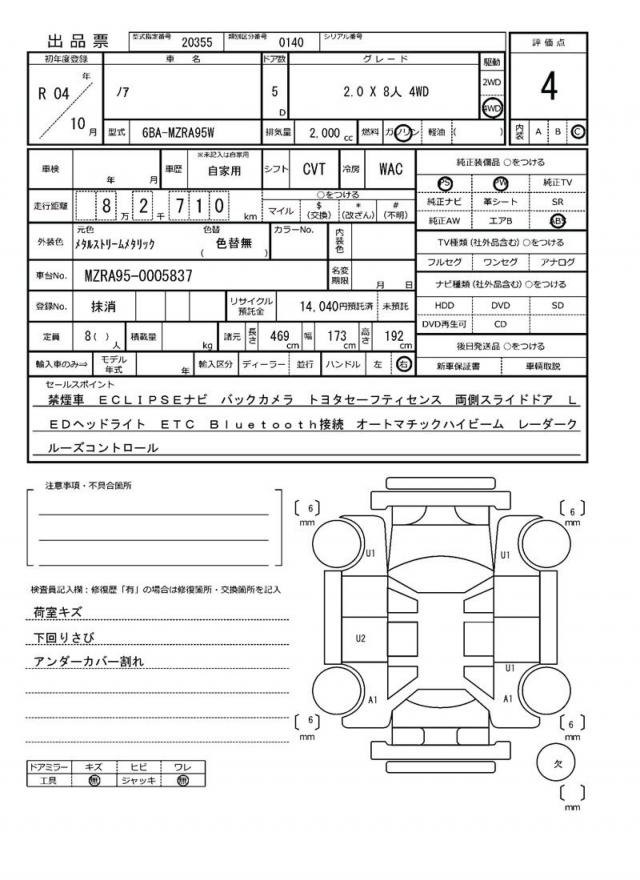 出品票 型式指定番号 20355 類別区分番号 0140 シリアル番号
初年度登録 車 名 ドア数 グレード 駆動 評価点
R 04 年 10 月 ノア 5 D 2.0 X 8人 4WD 2WD 4WD 4
型式 6BA-MZRA95W 排気量 2,000 cc 燃料 ガソリン 軽油 ( ) 内装 A B C
車検 年 月 車歴 ※未記入は自家用 自家用 シフト CVT 冷房 WAC 純正装備品 ○をつける
PS PW 純正TV
走行距離 8 万 2 千 7 1 0 km ○をつける マイル $ (交換) * (改ざん) # (不明) 純正ナビ 革シート SR
純正AW エアB ABS
外装色 元色 メタルストリームメタリック 色替 ( 色替無 ) カラーNo. 内装色 TV種類 (社外品含む) ○をつける
フルセグ ワンセグ アナログ
車台No. MZRA95-0005837 名変期限 月 日 ナビ種類 (社外品含む) ○をつける
登録No. 抹消 リサイクル預託金 14,040円預託済 未預託 HDD DVD SD
DVD再生可 CD
定員 8( ) 人 積載量 kg 諸元 長さ 469 cm 幅 173 cm 高さ 192 cm 後日発送品 ○をつける
輸入車のみ⇒ モデル年式 年 輸入区分 ディーラー 並行 ハンドル 左 右 新車保証書 車輌取説
セールスポイント
禁煙車 ECLIPSEナビ バックカメラ トヨタセーフティセンス 両側スライドドア L
EDヘッドライト ETC Bluetooth接続 オートマチックハイビーム レーダーク
ルーズコントロール
注意事項・不具合箇所
検査員記入欄:修復歴「有」の場合は修復箇所・交換箇所を記入
荷室キズ
下回りさび
アンダーカバー割れ
ドアミラー キズ ヒビ ワレ
工具 無 ジャッキ 無
[ 6 ] mm [ 6 ] mm
U1 U1
U2
U1
A1 A1
[ 6 ] mm [ 6 ] mm
欠
[ ] mm